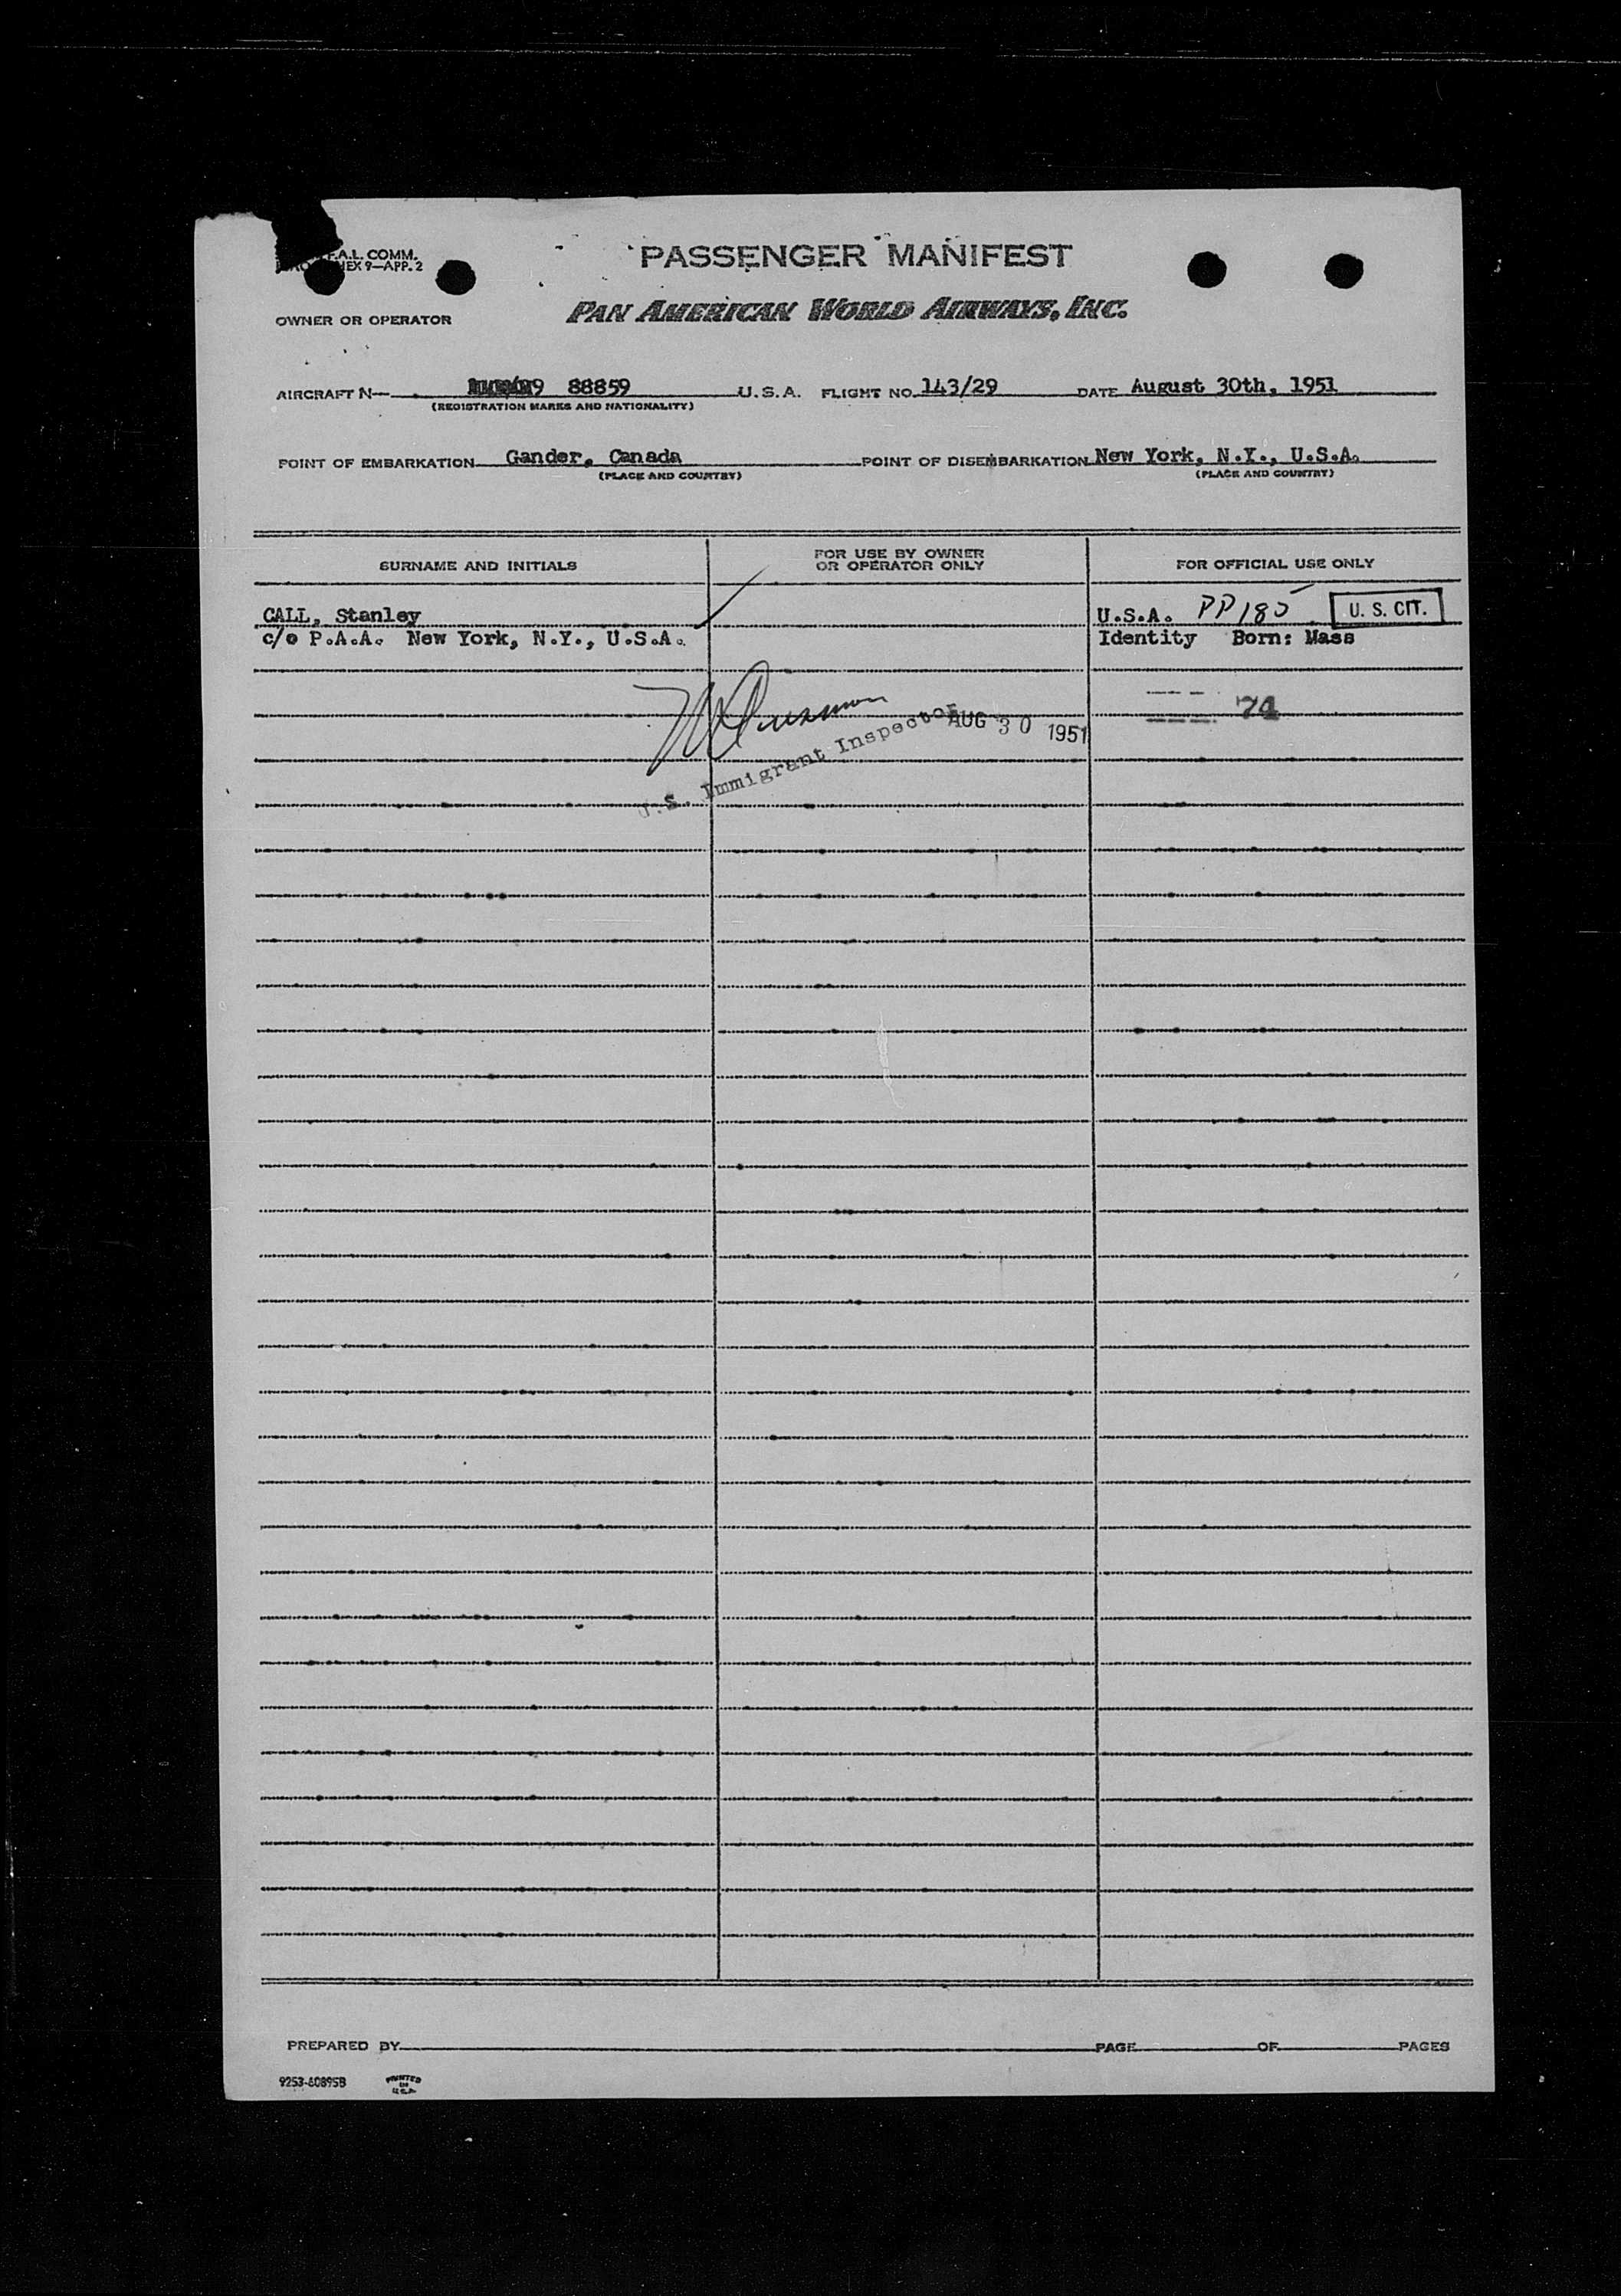 F.A.L. COMM.
NEX 9—APP. 2
PASSENGER MANIFEST
OWNER OR OPERATOR
PAN AMERICAN WORLD AIRWAYS, INC.
AIRCRAFT N— 88859 U.S.A. FLIGHT NO. 143/29 DATE August 30th, 1951
(REGISTRATION MARKS AND NATIONALITY)
POINT OF EMBARKATION Gander, Canada POINT OF DISEMBARKATION New York, N.Y., U.S.A.
(PLACE AND COUNTRY) (PLACE AND COUNTRY)
SURNAME AND INITIALS
FOR USE BY OWNER
OR OPERATOR ONLY
FOR OFFICIAL USE ONLY
CALL, Stanley
U.S.A. PP 185 U. S. CIT.
c/o P.A.A. New York, N.Y., U.S.A.
Identity Born: Mass
74
AUG 30 1951
U.S. Immigrant Inspector
PREPARED BY PAGE OF PAGES
9253-60895B
PRINTED
IN
U.S.A.